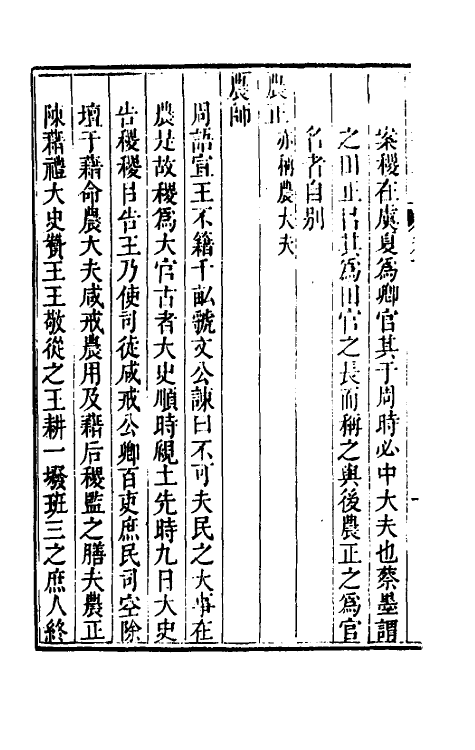 案稷在虞夏為卿官其于周時必中大夫也蔡墨謂
之田正呂其為田官之長而稱之與後農正之為官
名者自别
農正亦稱農大夫
農師
周語宣王不籍千畝虢文公諫曰不可夫民之大事在
農是故稷為大官古者大史順時覛土先時九日大史
告稷稷㠯告王乃使司徒咸戒公卿百吏庶民司空除
壇于藉命農大夫咸戒農用及藉后稷監之膳夫農正
陳藉禮大史贊王王敬從之王耕一墢班三之庶人終